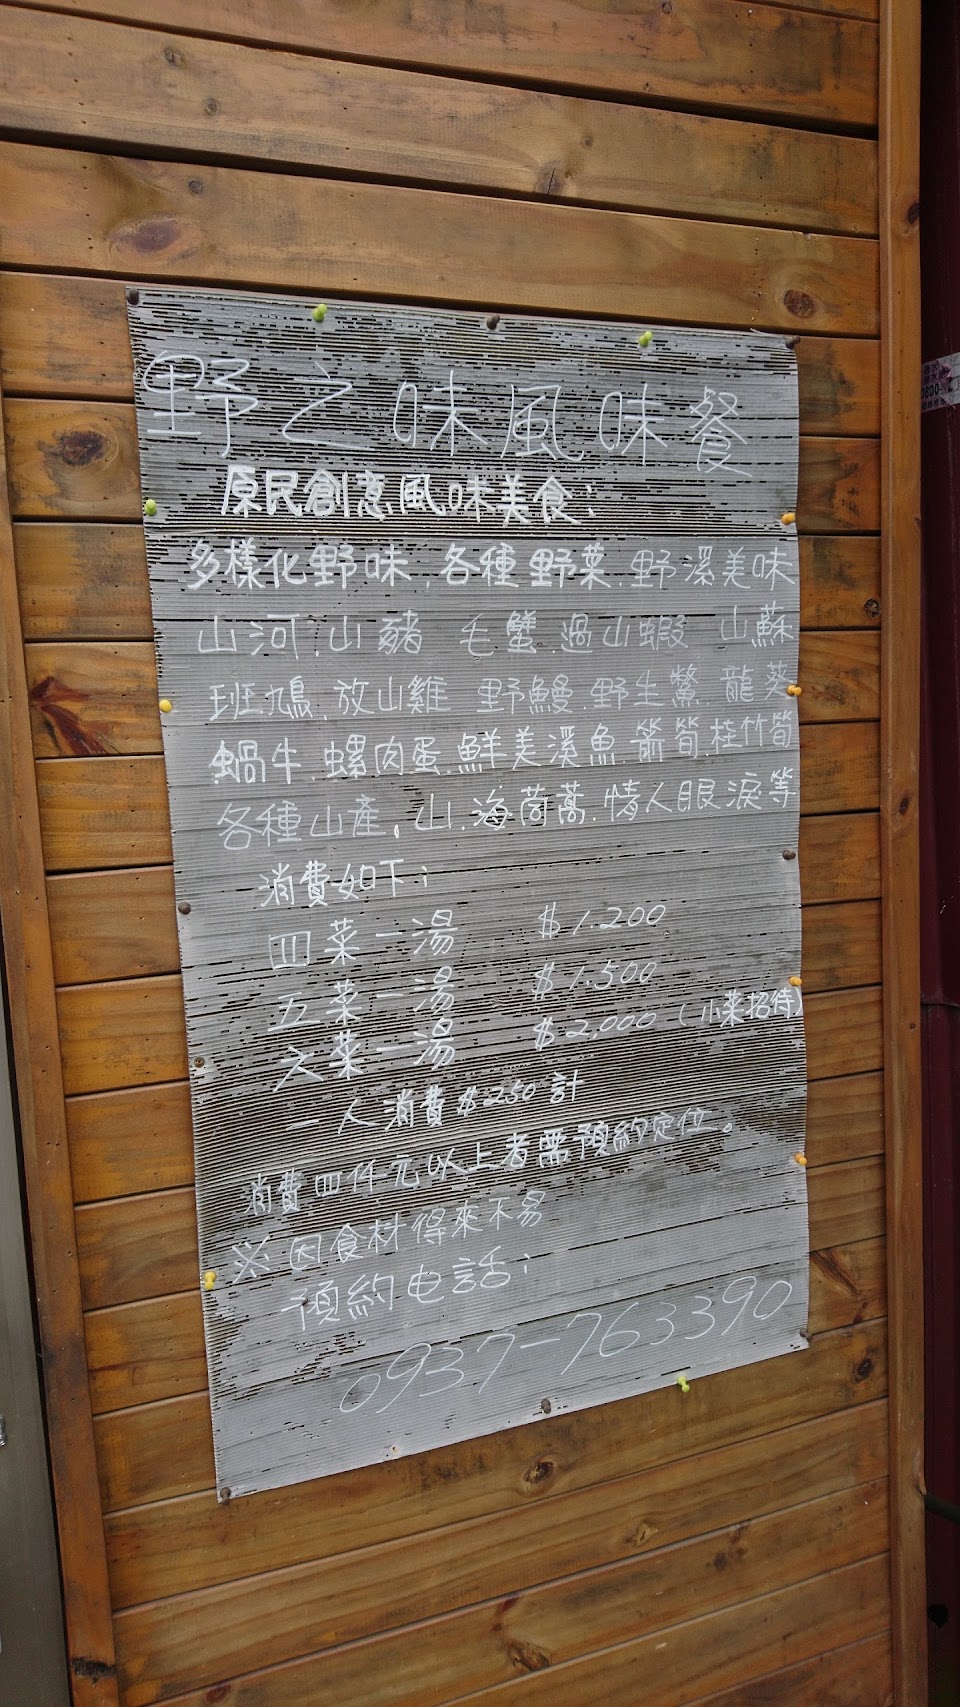 野之味風味餐
原民創意風味美食:
多樣化野味.各種野菜.野溪美味
山河.山豬 毛蟹.過山蝦 山蘇
班鳩.放山雞 野鰻.野生鱉 龍葵
蝸牛.螺肉蛋.鮮美溪魚.箭筍.桂竹筍
各種山產.山.海茼蒿.情人眼淚等
消費如下:
四菜一湯 $1.200
五菜一湯 $1.500
六菜一湯 $2,000 (小菜招待)
一人消費$250計
消費四仟元以上者需預約定位。
※因食材得來不易
預約电話:
0937-763390